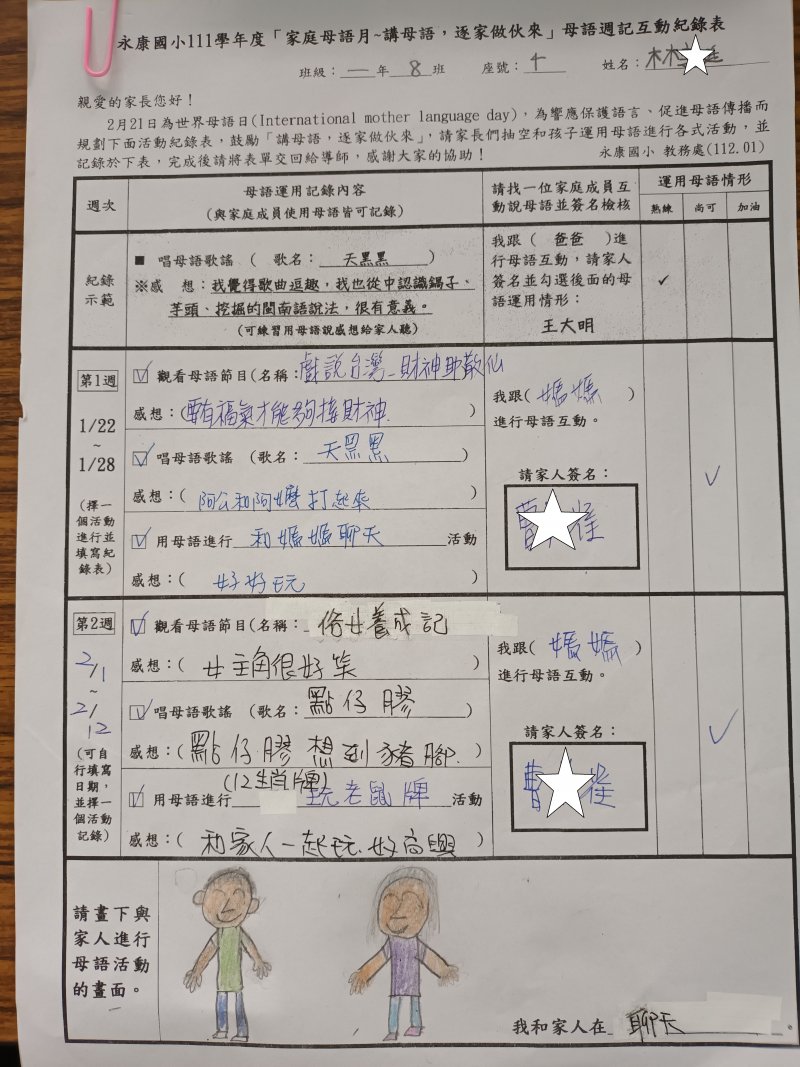 永康國小111學年度「家庭母語月~講母語，逐家做伙來」母語週記互動紀錄表
班級：一年8班 座號：4 姓名：林
親愛的家長您好！
2月21日為世界母語日(International mother language day)，為響應保護語言、促進母語傳播而
規劃下面活動紀錄表，鼓勵「講母語，逐家做伙來」，請家長們抽空和孩子運用母語進行各式活動，並
記錄於下表，完成後請將表單交回給導師，感謝大家的協助！ 永康國小 教務處(112.01)
週次
母語運用記錄內容
(與家庭成員使用母語皆可記錄)
請找一位家庭成員互
動說母語並簽名檢核
運用母語情形
熟練 尚可 加油
紀錄
示範
■ 唱母語歌謠 ( 歌名：天黑黑)
※感 想：我覺得歌曲逗趣，我也從中認識鍋子、
芋頭、挖掘的閩南語說法，很有意義。
(可練習用母語說感想給家人聽)
我跟( 爸爸 )進
行母語互動，請家人
簽名並勾選後面的母
語運用情形：
王大明
✓
第1週
1/22
~
1/28
(擇一
個活動
進行並
填寫紀
錄表)
☑ 觀看母語節目(名稱：戲說台灣_財神助散仙
感想：(要有福氣才能夠接財神)
☑ 唱母語歌謠 (歌名：天黑黑)
感想：(阿公和阿嬤打起來)
☑ 用母語進行 和媽媽聊天 活動
感想：(好好玩)
我跟(媽媽)
進行母語互動。
請家人簽名：
曹
✓
第2週
2/1
~
2/12
(可自
行填寫
日期，
並擇一
個活動
記錄)
☑ 觀看母語節目(名稱：俗女養成記
感想：(女主角很好笑)
☑ 唱母語歌謠 (歌名：點仔膠)
感想：(點仔膠想到豬腳.)
(12生肖牌)
☑ 用母語進行 玩老鼠牌 活動
感想：(和家人一起玩.好高興)
我跟(媽媽)
進行母語互動。
請家人簽名：
曹
✓
請畫下與
家人進行
母語活動
的畫面。
我和家人在 聊天。